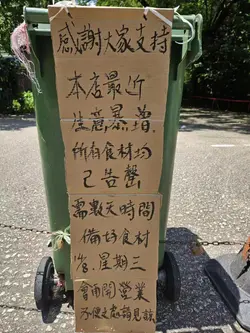 感謝大家支持
本店最近
生意暴增
所有食材均
已告罄
需數天時間
備好食材
星期三
會再開營業
不便之處請見諒